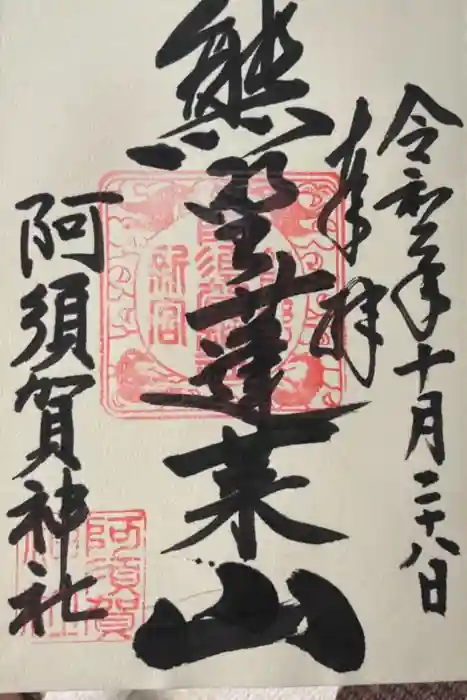 令和年十月二十八日
奉拝
熊野蓬莱山
新宮
阿須賀神社
阿須賀神社